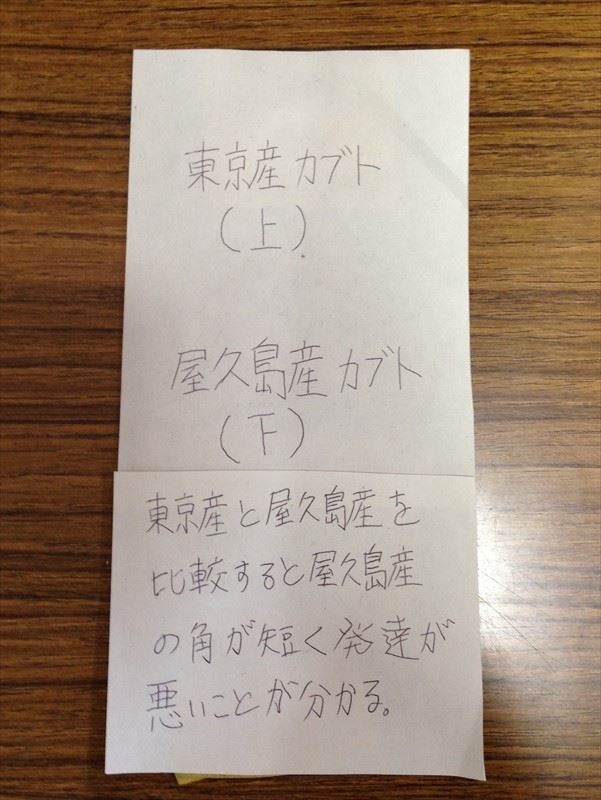 東京産カブト
(上)
屋久島産カブト
(下)
東京産と屋久島産を
比較すると屋久島産
の角が短く発達が
悪いことが分かる。